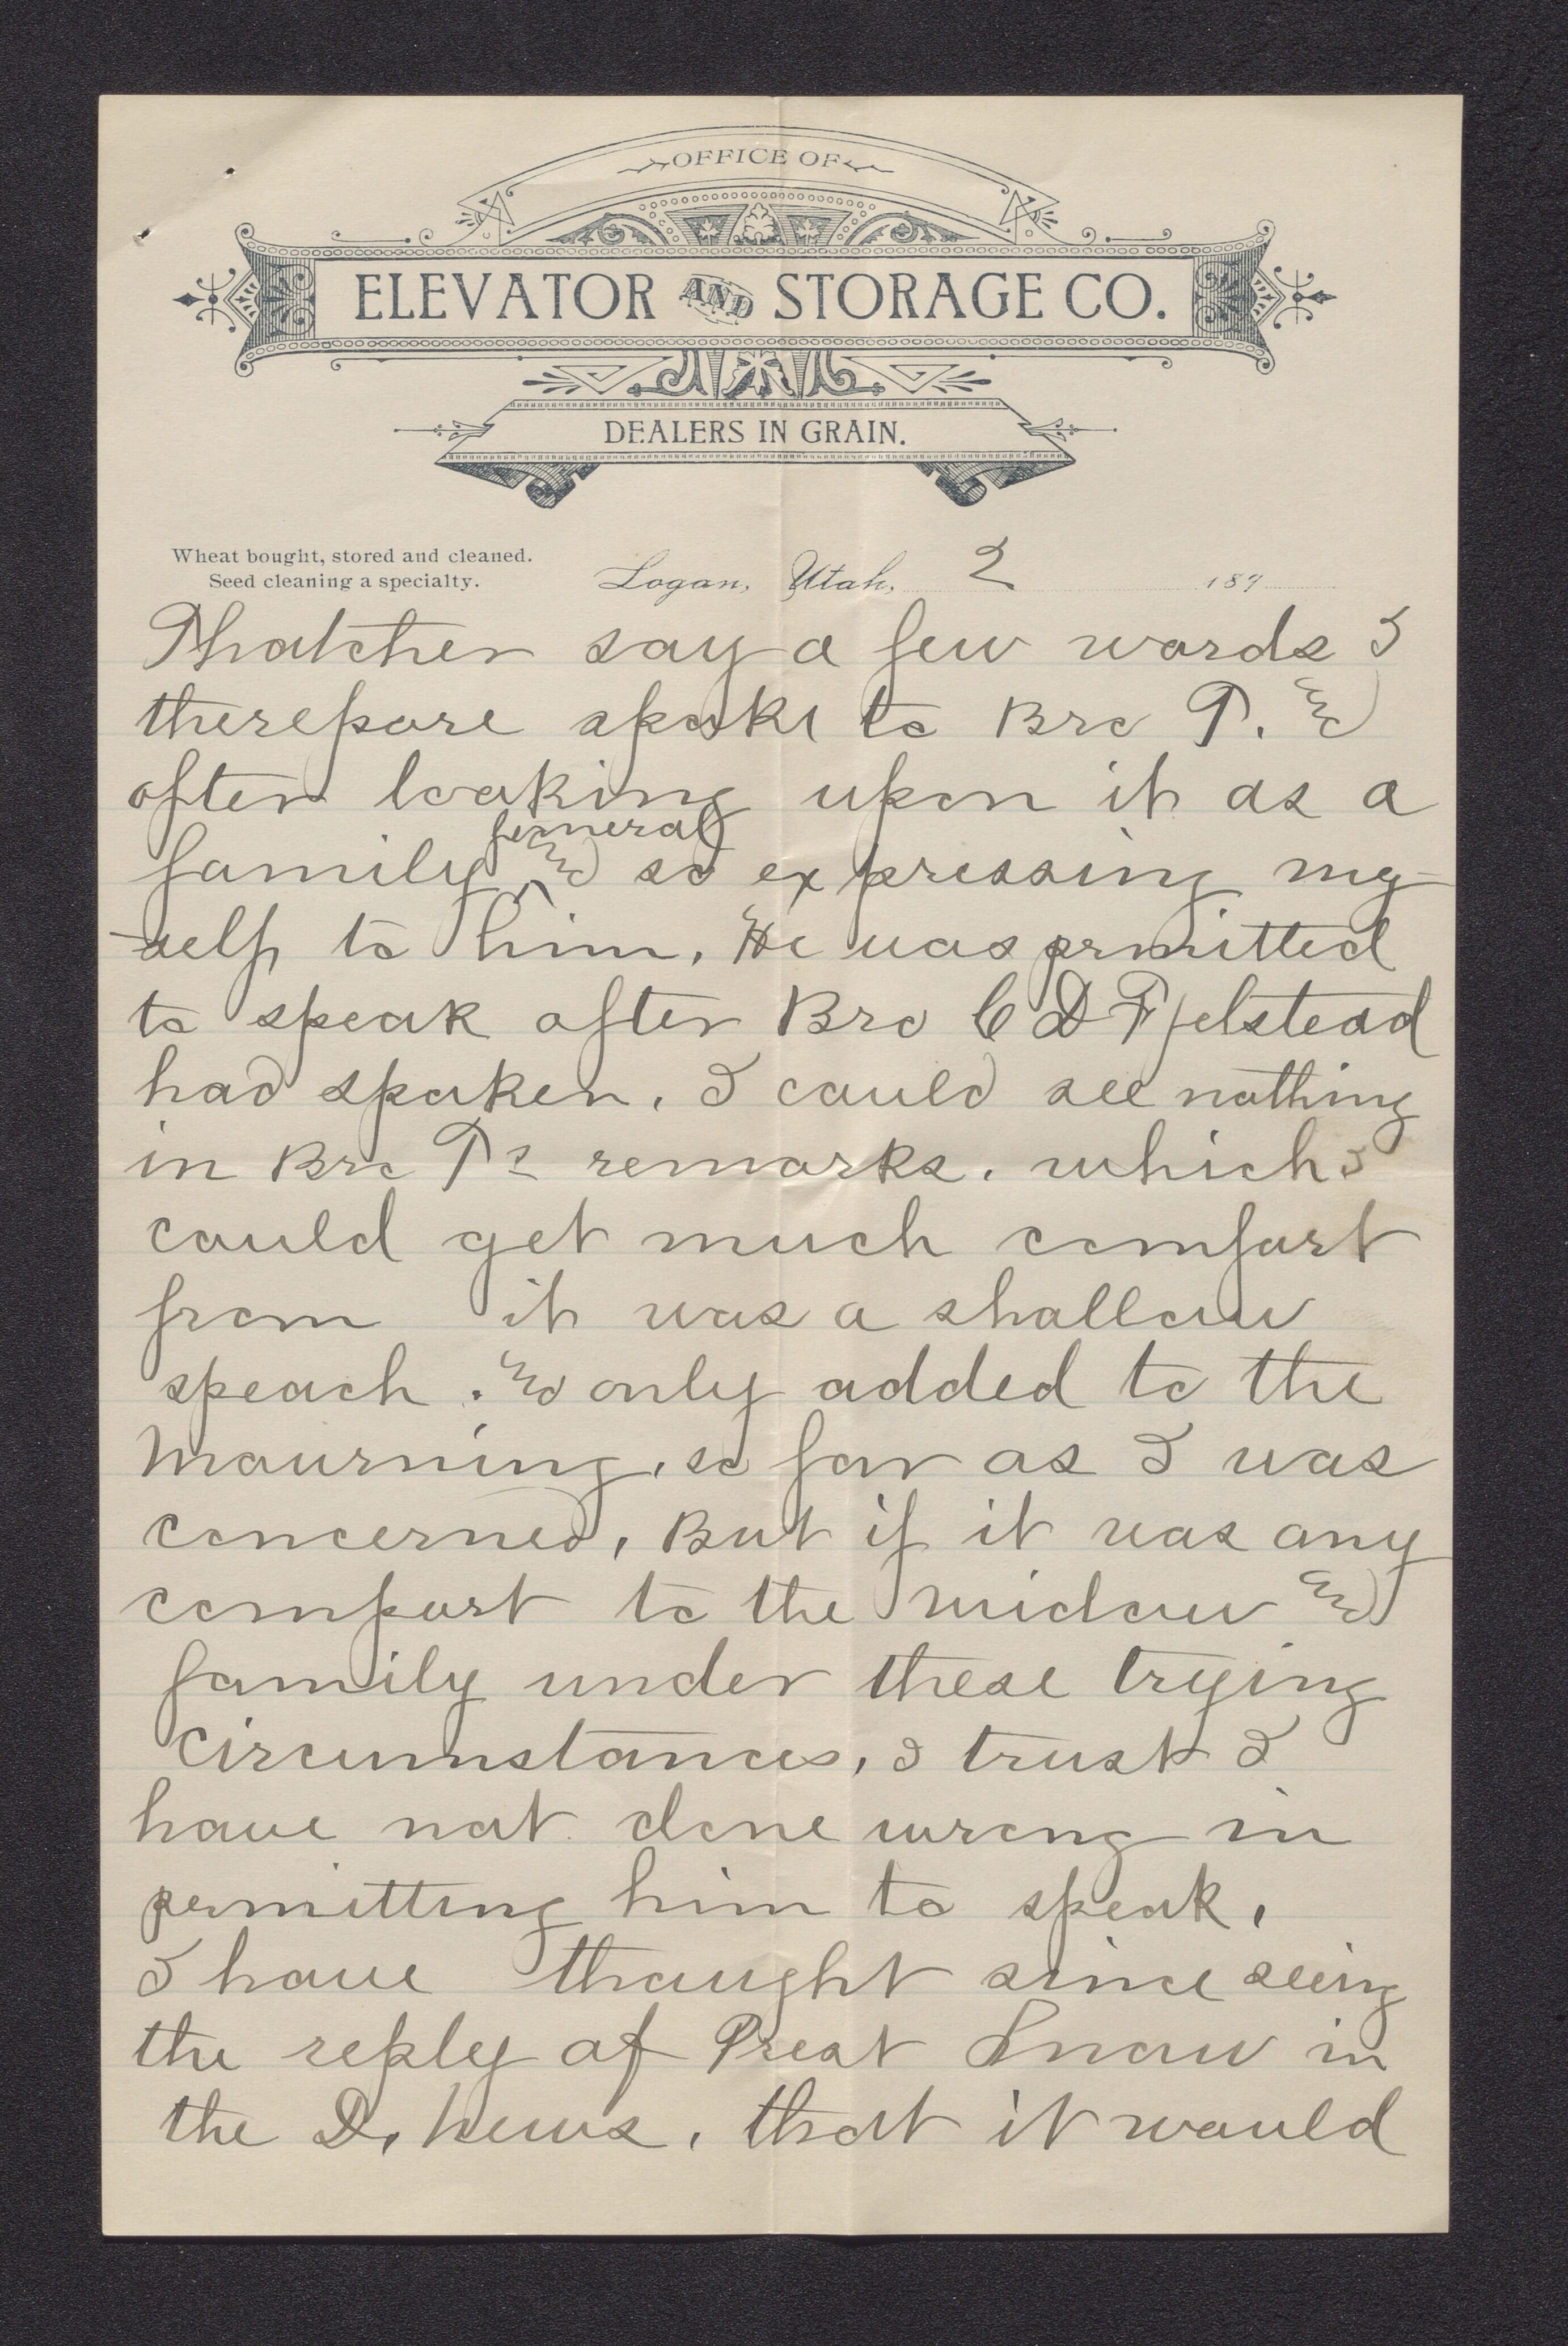 OFFICE OF
ELEVATOR AND STORAGE CO.
DEALERS IN GRAIN.
Wheat bought, stored and cleaned.
Seed cleaning a specialty.
Logan, Utah, 2 189
Thatcher say a few words I
therefore spoke to Bro T. &
after looking upon it as a
family funeral & so expressing my-
-self to him. He was prmitted
to speak after Bro C D Fjelstead
had spoken. I could see nothing
in Bro Ts remarks. which I
could get much comfort
from it was a shallow
speach. & only added to the
mourning, so far as I was
concerned, But if it was any
comfort to the widow &
family under these trying
circumnstances, I trust I
have not done wrong in
permitting him to speak,
I have thought since seeing
the reply of Prest Snow in
the D. News, that it would